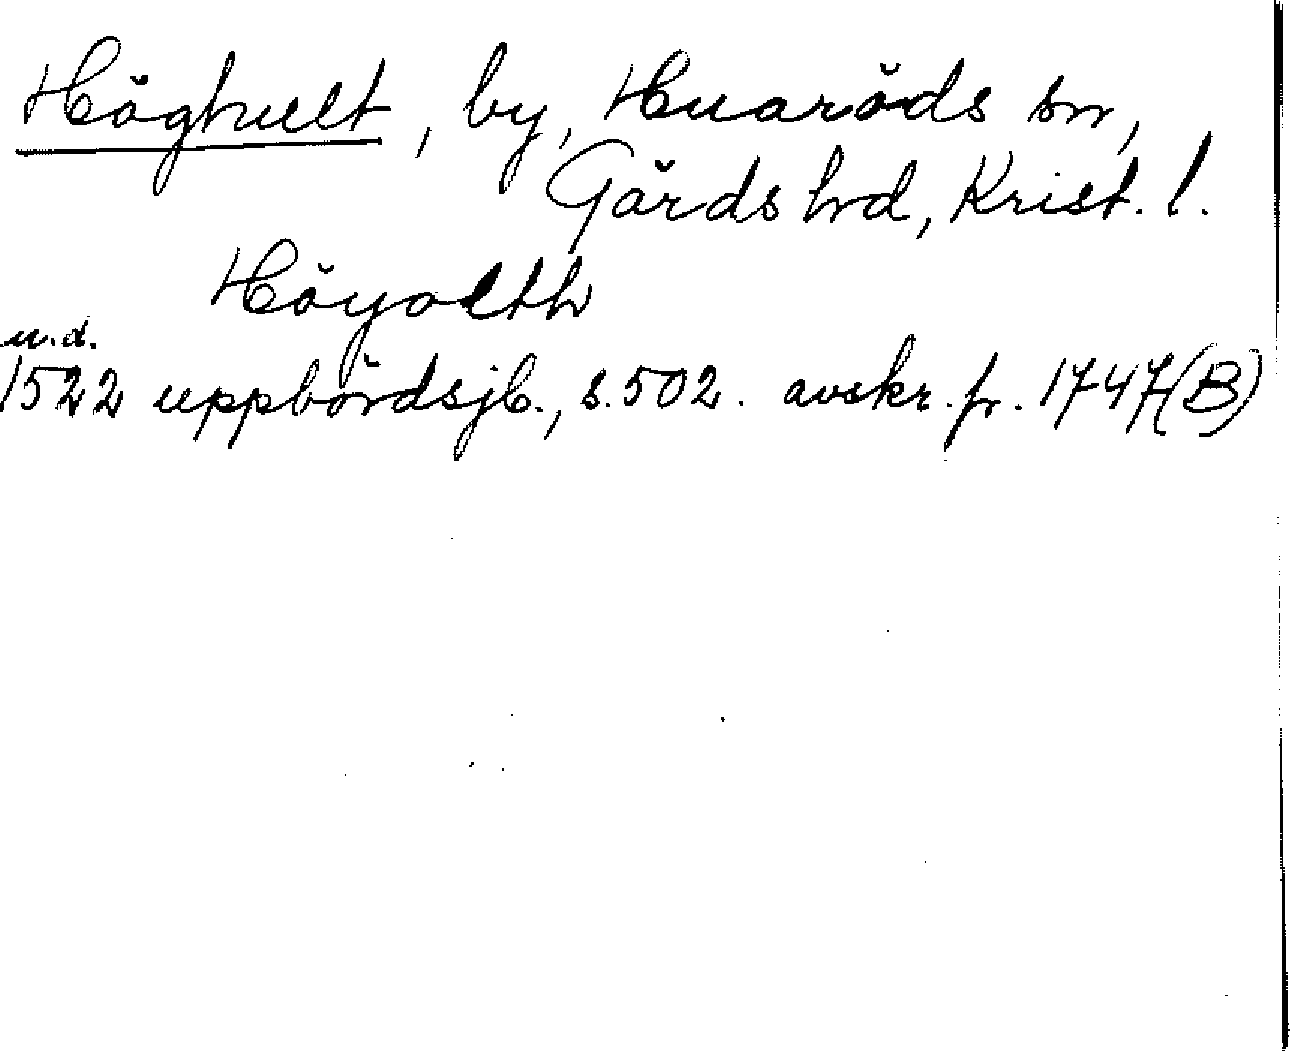 Höghult, by, Huaröds sn,
Gärds hd, Krist. l.
Höyolth
u.d.
1522 uppbördsjb., s. 502. avskr. fr. 1747(B)